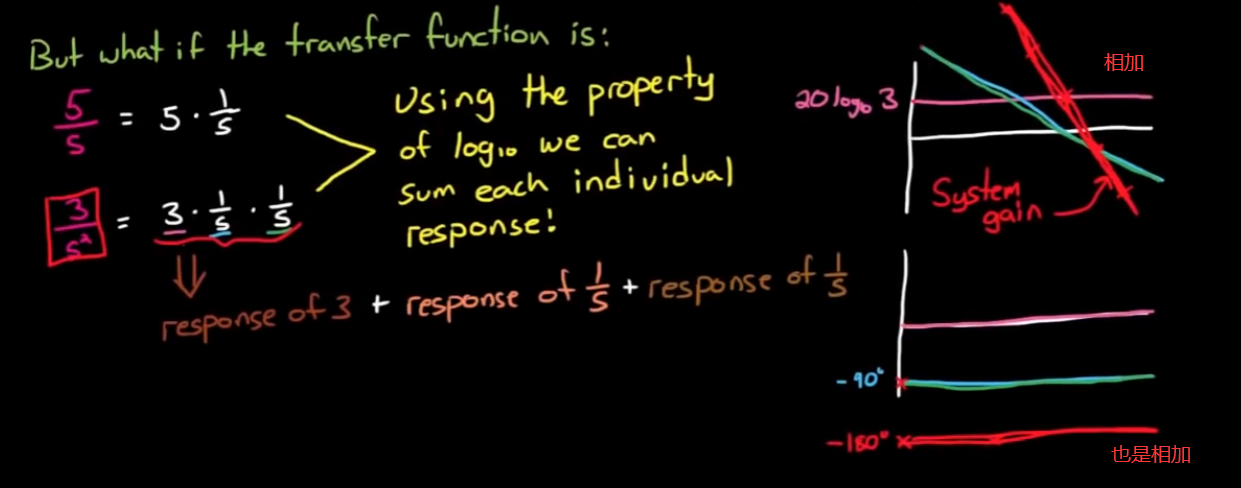 But what if the transfer function is:
5/s = 5 · 1/s
3/s² = 3 · 1/s · 1/s
Using the property
of log₁₀ we can
sum each individual
response!
response of 3 + response of 1/s + response of 1/s
相加
20 log₁₀ 3
System
gain
-90°
-180°
也是相加